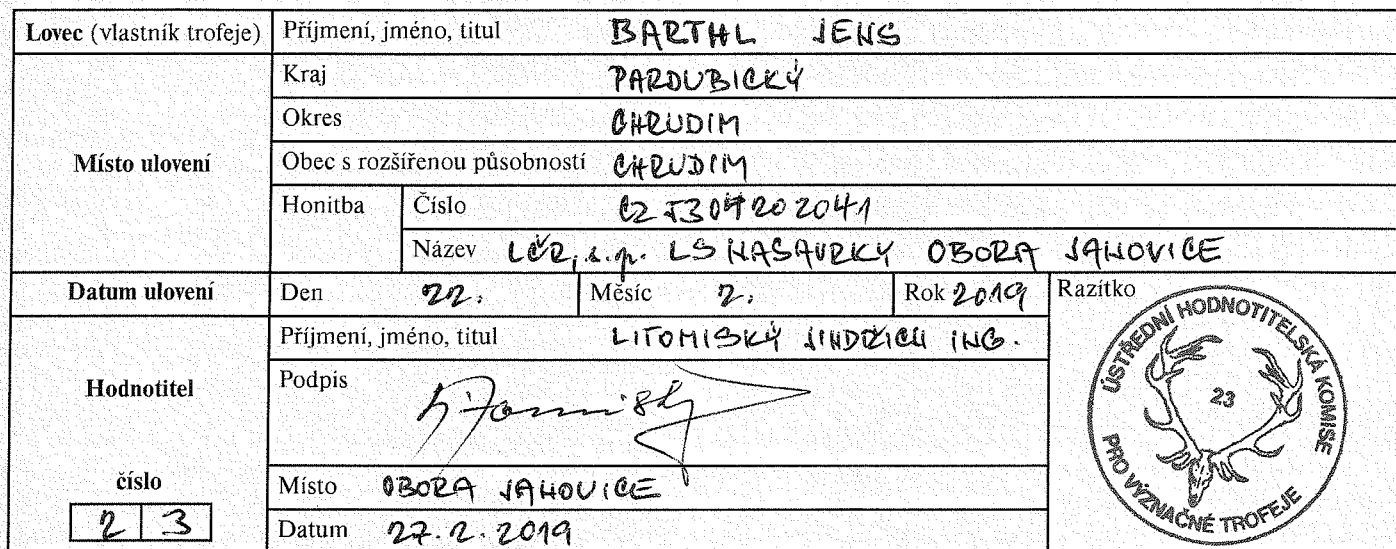 Lovec (vlastník trofeje) Příjmení, jméno, titul BARTHL JENS
Místo ulovení
Kraj PARDUBICKÝ
Okres CHRUDIM
Obec s rozšířenou působností CHRUDIM
Honitba Číslo CZ 5304202041
Název LČR, s.p. LS NASAVRKY OBORA JANOVICE
Datum ulovení Den 22. Měsíc 2. Rok 2019 Razítko
Hodnotitel
Příjmení, jméno, titul LITOMISKÝ JINDŘICH ING.
Podpis
číslo
2 3
Místo OBORA JANOVICE
Datum 27.2.2019
ÚSTŘEDNÍ HODNOTITELSKÁ KOMISE
23
PRO VÝZNAČNÉ TROFEJE